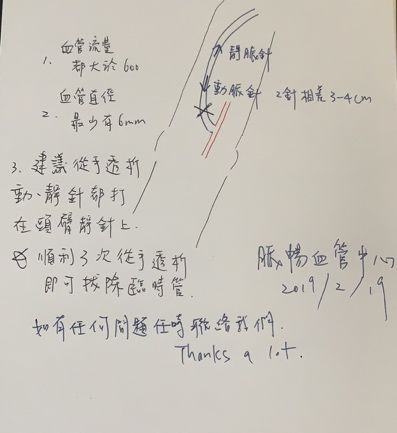 血管流量
1. 都大於600
血管直徑
2. 最少有6mm
靜脈針
動脈針 2針相差3-4cm
3. 建議從手透析
動、靜針都打
在頭臂靜針上.
順利3次從手透析
即可拔除臨時管.
脈暢血管中心
2019/2/19
如有任何問題任時聯絡我們.
Thanks a lot.